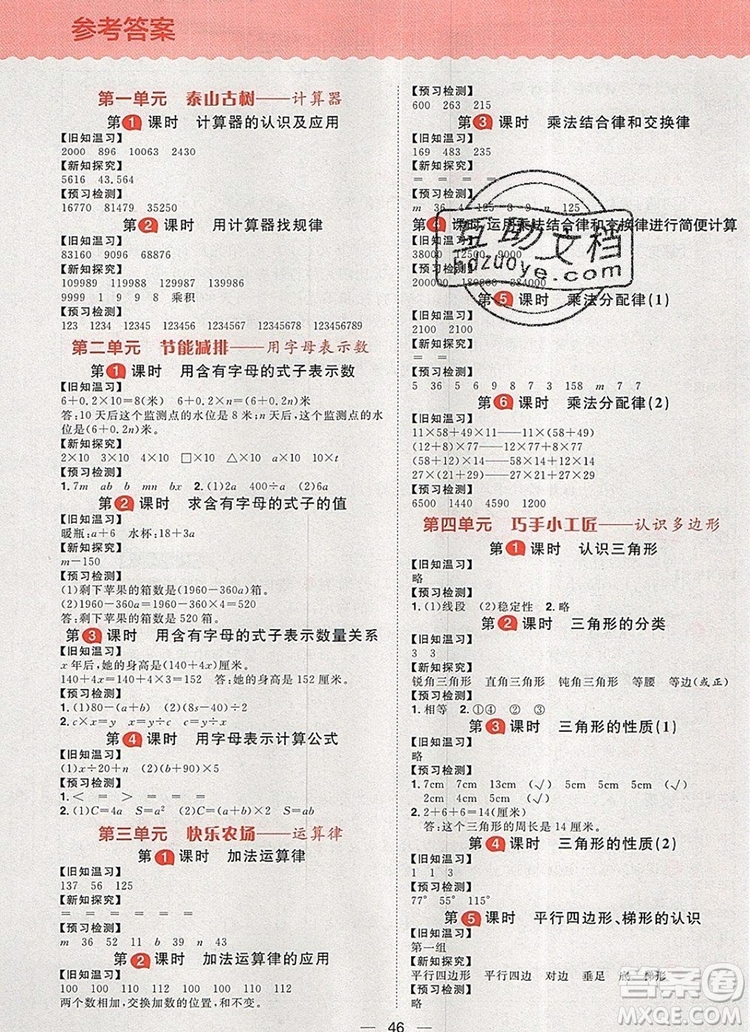 参考答案
第一单元 泰山古树——计算器
第1课时 计算器的认识及应用
【旧知温习】
2000 896 10063 2430
【新知探究】
5616 43.564
【预习检测】
16770 81479 35 38250
第2课时 用计算器找规律
【旧知温习】
83160 9096 68876
【新知探究】
109989 119988 129987 139986
9999 1 9 9 8 乘积
【预习检测】
123 1234 12345 123456 1234567 12345678 123456789
第二单元 节能减排——用字母表示数
第1课时 用含有字母的式子表示数
【旧知温习】
6+0.2×10=8(米) 6+0.2×n=(6+0.2n)米
答:10天后这个监测点的水位是8米;n天后,这个监测点的水
位是(6+0.2n)米。
【新知探究】
2×10 3×10 4×10 □×10 △×10 a×10 x×10 n×10 t
【预习检测】
1.7m ab b mn a² 2.400÷a 400 (2)6a
第2课时 求含有字母的式子的值
【旧知温习】
暖瓶:a+6 水杯:18+3a
【新知探究】
m-150
【预习检测】
(1)剩下苹果的箱数是(1960-360a)箱。
(2)1960-360a=1960-360×4=520
答:剩下苹果的箱数是520箱。
第3课时 用含有字母的式子表示数量关系
【旧知温习】
x年后,她的身高是(140+4x)厘米。
140+4x=140+4×3=152(厘米) 答:她的身高是152厘米。
【预习检测】
1.(1)80-(a+b) (2)(8s-40)÷c
2.c×x=y x=y÷c c=y÷x
第4课时 用字母表示计算公式
【旧知温习】
(1)x÷20+n (2)(x+9)×5
【预习检测】
1.< = > = < =
2.(1)C=4a S=a² (2)C=(a+b)×2 S=ab
第三单元 快乐农场——运算律
第1课时 加法运算律
【旧知温习】
137 56 125
【新知探究】
= = = = = =
【预习检测】
m 36 22 52 11 b 39 n 43
第2课时 加法运算律的应用
【旧知温习】
100 100 110 110 111 111 108 108
两个数相加,交换加数的位置,和不变。
【预习检测】
600 263 215
第3课时 乘法结合律和交换律
【旧知温习】
169 483 235
【新知探究】
= = = =
【预习检测】
第4课时 运用乘法结合律和交换律进行简便计算
第5课时 乘法分配律(1)
【旧知温习】
2100 2100
【新知探究】
= = =
【预习检测】
5 36 5 9 8 7 69 158 m 7 7
第6课时 乘法分配律(2)
【新知探究】
11×58+49×11——11×(58+49)
(12+8)×77——12×77+8×77
(58+12)×14——58×14+12×14
27×21+29×27——27×(21+29)
【预习检测】
6500 1440 4590 1200
第四单元 巧手小工匠——认识多边形
第1课时 认识三角形
【旧知温习】
略
【预习检测】
1.(1)线段 (2)稳定性 2.略
第2课时 三角形的分类
【旧知温习】
3 3
【新知探究】
锐角三角形 直角三角形 钝角三角形 等腰 等边(或正)
【预习检测】
1.相等 2.①④ ②③
第3课时 三角形的性质(1)
【旧知温习】
略
【预习检测】
1.7cm 4cm 4cm (√) 5cm 5cm 5cm (√)
2cm 2cm 9cm 9cm (√)
2.2+6+6=14(厘米)
答:这个三角形的周长是14厘米。
第4课时 三角形的性质(2)
【旧知温习】
1 1 3
【预习检测】
77° 55° 115°
第5课时 平行四边形、梯形的认识
【旧知温习】
第一组
【新知探究】
平行四边形 平行四边形 对边 垂足 底 梯形
【预习检测】
略
46
互助文档
hdzuoye.com
答案圈
MXQE.COM